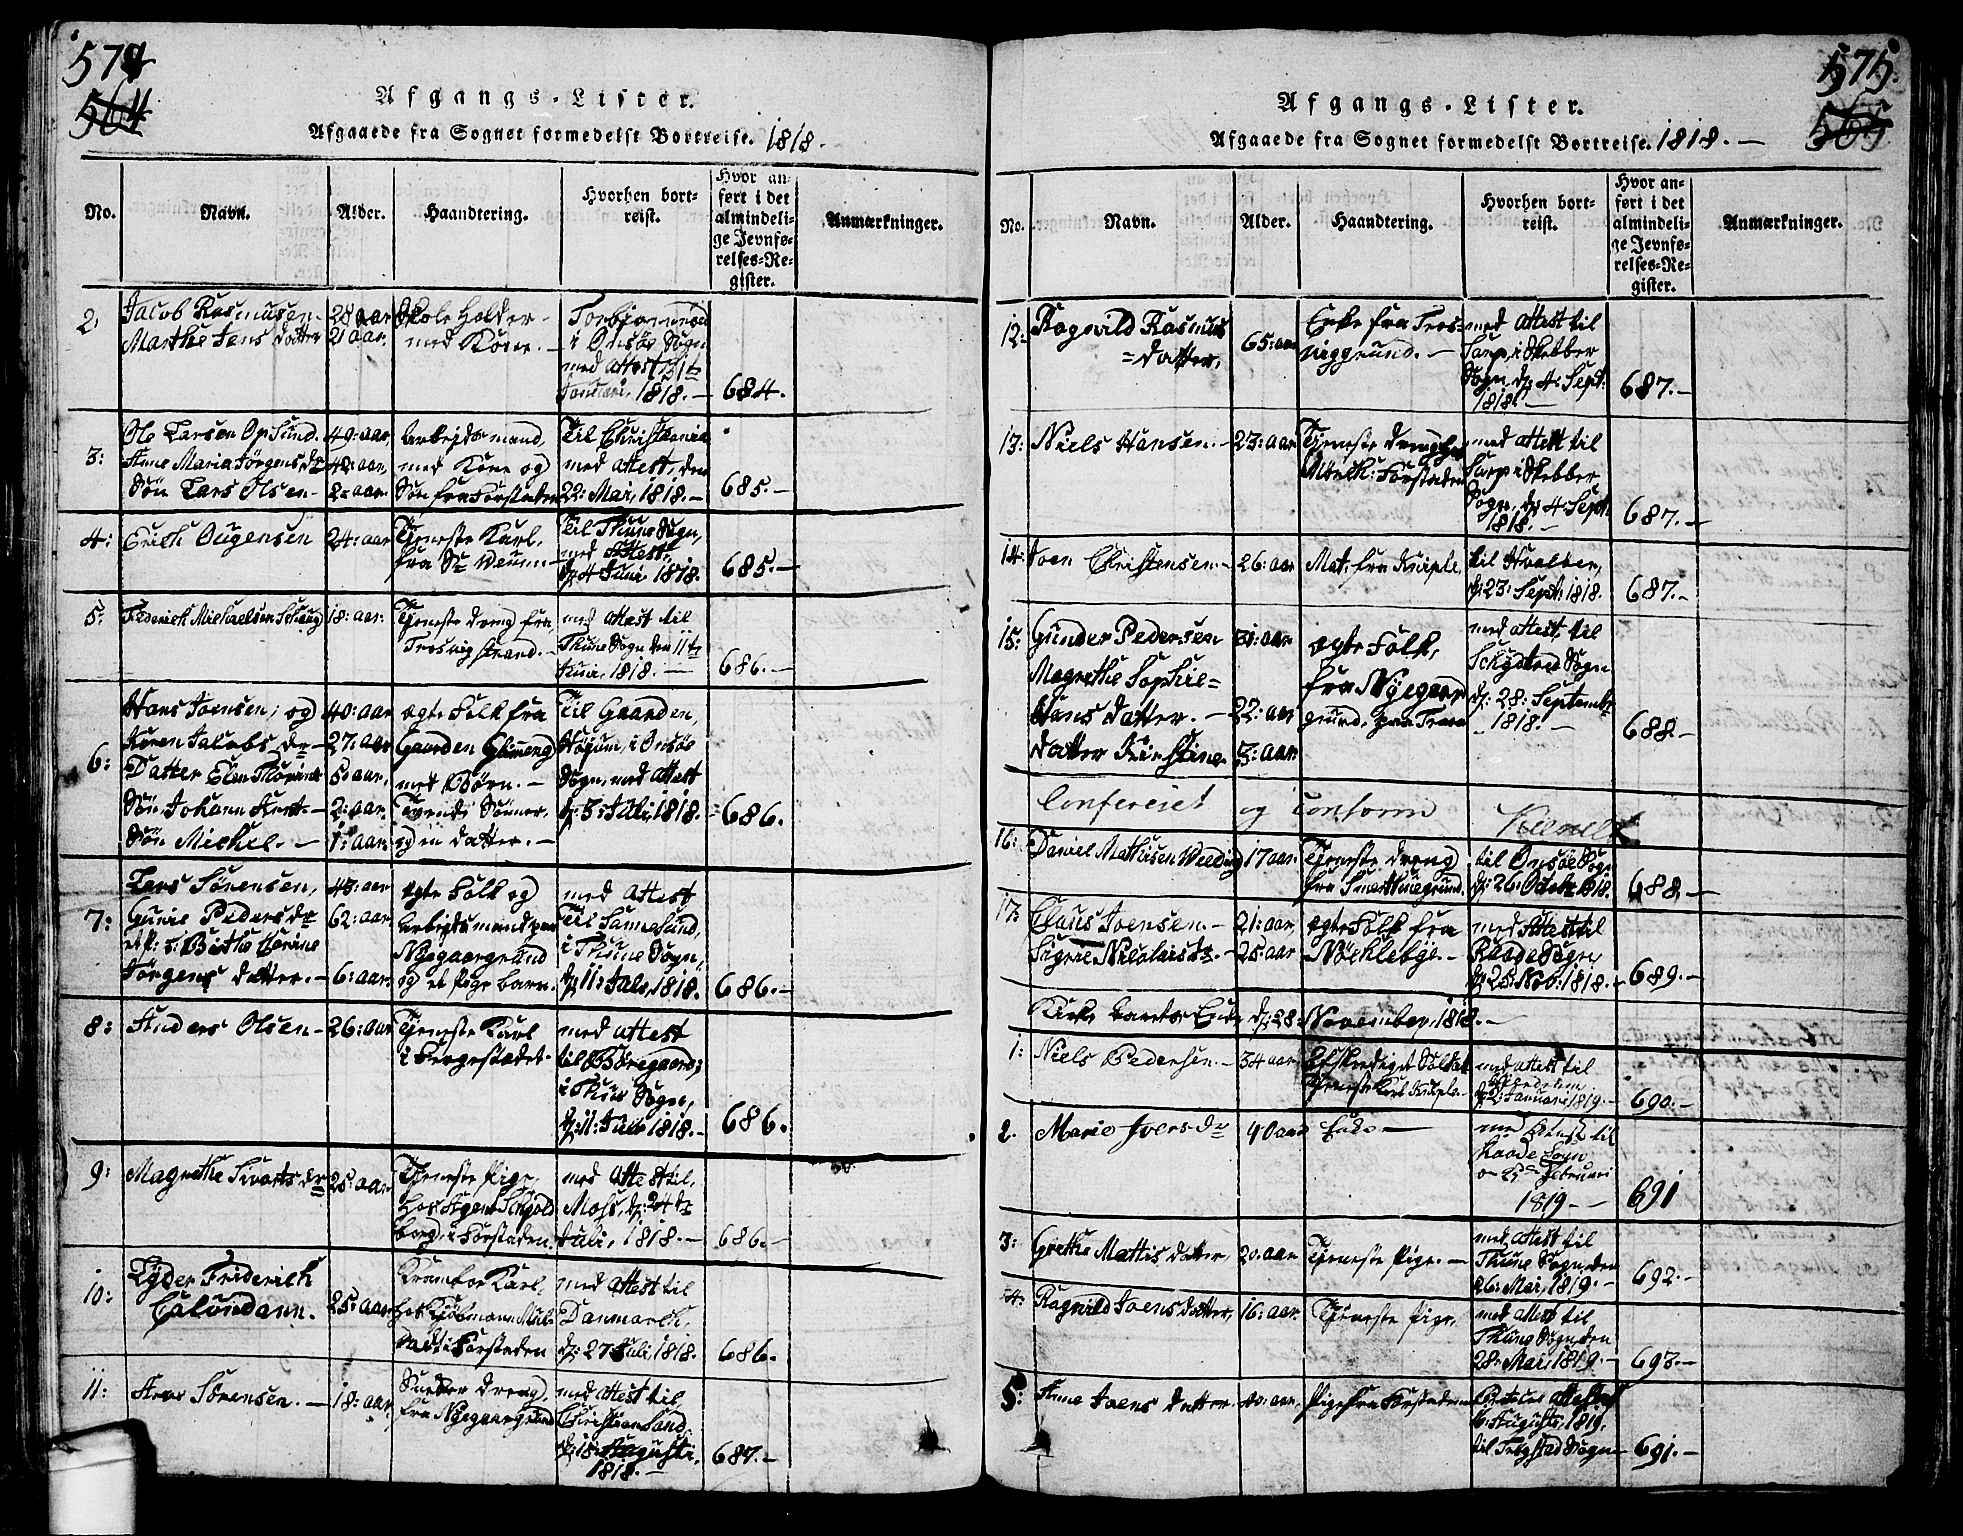 574
564
Afgangs-Lister.
Afgaaede fra Sognet formedelst Bortreise. 1818.
No.
Navn.
Alder.
Haandtering.
Hvorhen bort-
reist.
Hvor an-
ført i det
almindeli-
ge Jevnfø-
relses-Re-
gister.
Anmærkninger.
2:
Jacob Rasmusen-
Marthe Jens Datter
28 aar
21 aar.
Skole Holder
med Kone. -
i Onsøe Sogn
med Attest 31te
Januari, 1818. -
684.
3:
Ole Larsen Opsund.
Anne Maria Jörgens Dr
Sön Lars Olsen-
49: aar,
42: aar,
2: aar.
Arbeids mand,
med Kone og
Sön fra Forstaden
Til Christiania
med Attest, den
22: Mai, 1818. -
685. -
4:
Erich Ougensen
24: aar
Tjeneste Karl,
fra
Til Thune Sogn,
med Attest,
d: 4 Juni, 1818.
685. -
5:
Frederich Michaelsen
18: aar.
Tjeneste dreng fra,
Trosvig strand. -
med Attest til
Thune Sogn den 11te
Juni, 1818. -
686. -
6:
Hans Joensen; og
Karen Jacobs Dr -
Datter Elen Thorine
Sön Johann
Sön Michel. -
40: aar
27: aar
5: aar,
2: aar.
1: aar.
ægte Folk fra
Gaarden
med Børn. -
Tvende Sønner,
og en Datter. -
Til Gaarden,
i Onsöe
Sogn, med Attest
d: 3: Juli, 1818. -
686.
7:
Lars Sörensen,
Gunie Peders Dr
Jörgens Datter. -
43: aar
62: aar.
6: aar.
ægte Folk og
Arbeids mand paa
Nygaardgrund
og et Pige barn.
med Attest
Til Sannesund,
i Thune Sogn,
d: 11: Juli, 1818.
686. -
8:
Anders Olsen -
26: aar
Tjeneste Karl
i Færgestædet-
med Attest
til Borregaard;
i Thune Sogn,
d: 11: Juli 1818. -
686.
9:
Magrethe Sivarts Dr
25: aar.
Tjeneste Pige,
hos Agent
borg, i Forstaden.
med Attest til,
Moss, d: 24de
Juli, 1818. -
686. -
10:
Lyder Friderich
Calundann.
25: aar
Kramboe Karl,
hos Kjöbmann
i Forstaden
med Attest til
Danmarch,
d: 27 Juli, 1818.
686.
11:
Sörensen. -
18: aar,
dreng,
fra Nygaardgrund
med Attest til,
Christiansand,
d: 18: Augusti,
1818. -
687. -
575.
565
Afgangs-Lister.
Afgaaede fra Sognet formedelst Bortreise. 1818. -
No.
Navn.
Alder.
Haandtering.
Hvorhen bort-
reist.
Hvor an-
ført i det
almindeli-
ge Jevnfø-
relses-Re-
gister.
Anmærkninger.
12:
Ragnild Rasmus
=Datter,
65: aar
Enke fra Tros-
viggrund. -
med Attest til
Sarp, i Skebber
Sogn, d: 4: Sept:
1818. -
687. -
13:
Niels Hansen. -
23: aar
Tjeneste dreng
Forstaden
med Attest til
Sarp i Skebber
Sogn, d: 4 Sept.
1818. -
687. -
14:
Joen Christensen. -
26: aar
Mat: fra Kniple,
til Hvaløer,
d: 23: Sept: 1818.
687. -
15:
Gunder Pedersen
Magrethe Sophie=
Hans Datter. -
Datter Kirstine
31: aar
22: aar
3: aar
ægte Folk,
fra Nygaard
grund,
med Attest, til
Sogn
d: 28: Septembr
1818. -
688 -
Confereret og conform
16:
Daniel Mathisen
17 aar.
Tjeneste dreng
fra
til Onsöe Sogn
d: 26: Octobr 1818.
688 -
17:
Claus Joensen. -
Signe Nicolaisdr. -
21: aar,
25: aar
ægte Folk fra
Nöchlebye. -
med Attest til
Raade Sogn,
d: 25: Nov: 1818. -
689. -
Kirke Aarets Ende d: 28: November, 1818. -
1:
Niels Pedersen. -
34 aar
Afskediget Soldat
Tjeneste Karl Kniple. -
med Attest til
d: 2: Januari 1819. -
690. -
2.
Marie Joens Dr
40 aar
Enke -
med Attest til
Raade Sogn
Februari
1819 - -
691
3:
Grethe Mattis Datter,
20: aar.
Tjeneste Pige. -
med Attest til
Thune Sogn, den
26: Mai, 1819. -
692. -
4:
Ragnild Joens Datter,
16: aar.
Tjeneste Pige,
med Attest til
Thune Sogn, den
28: Mai, 1819. -
693. -
5:
Anne Joens Datter
20: aar,
Pige fra Forstaden
Attest
6: Augusti, 1819.
til Trøgstad Sogn
691. -